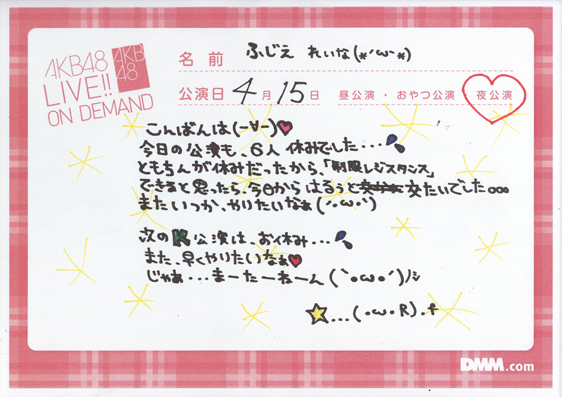 AKB48
LIVE!!
ON DEMAND
AKB
48
名前 ふじえ れいな(*´ω`*)
公演日 4月15日 昼公演・おやつ公演・夜公演
こんばんは(-∀-)♥
今日の公演も、6人休みでした・・・
ともちんが休みだったから、「制服レジスタンス」
できると思ったら、今日からはるぅと交たいでした。。。
またいつか、やりたいなぁ(´・ω・`)
次のK公演は、お休み・・・
また、早くやりたいなぁ♥
じゃぁ・・・まーたーねーん(`・ω・´)ﾉｼ
☆...(・ω・R).f
DMM.com